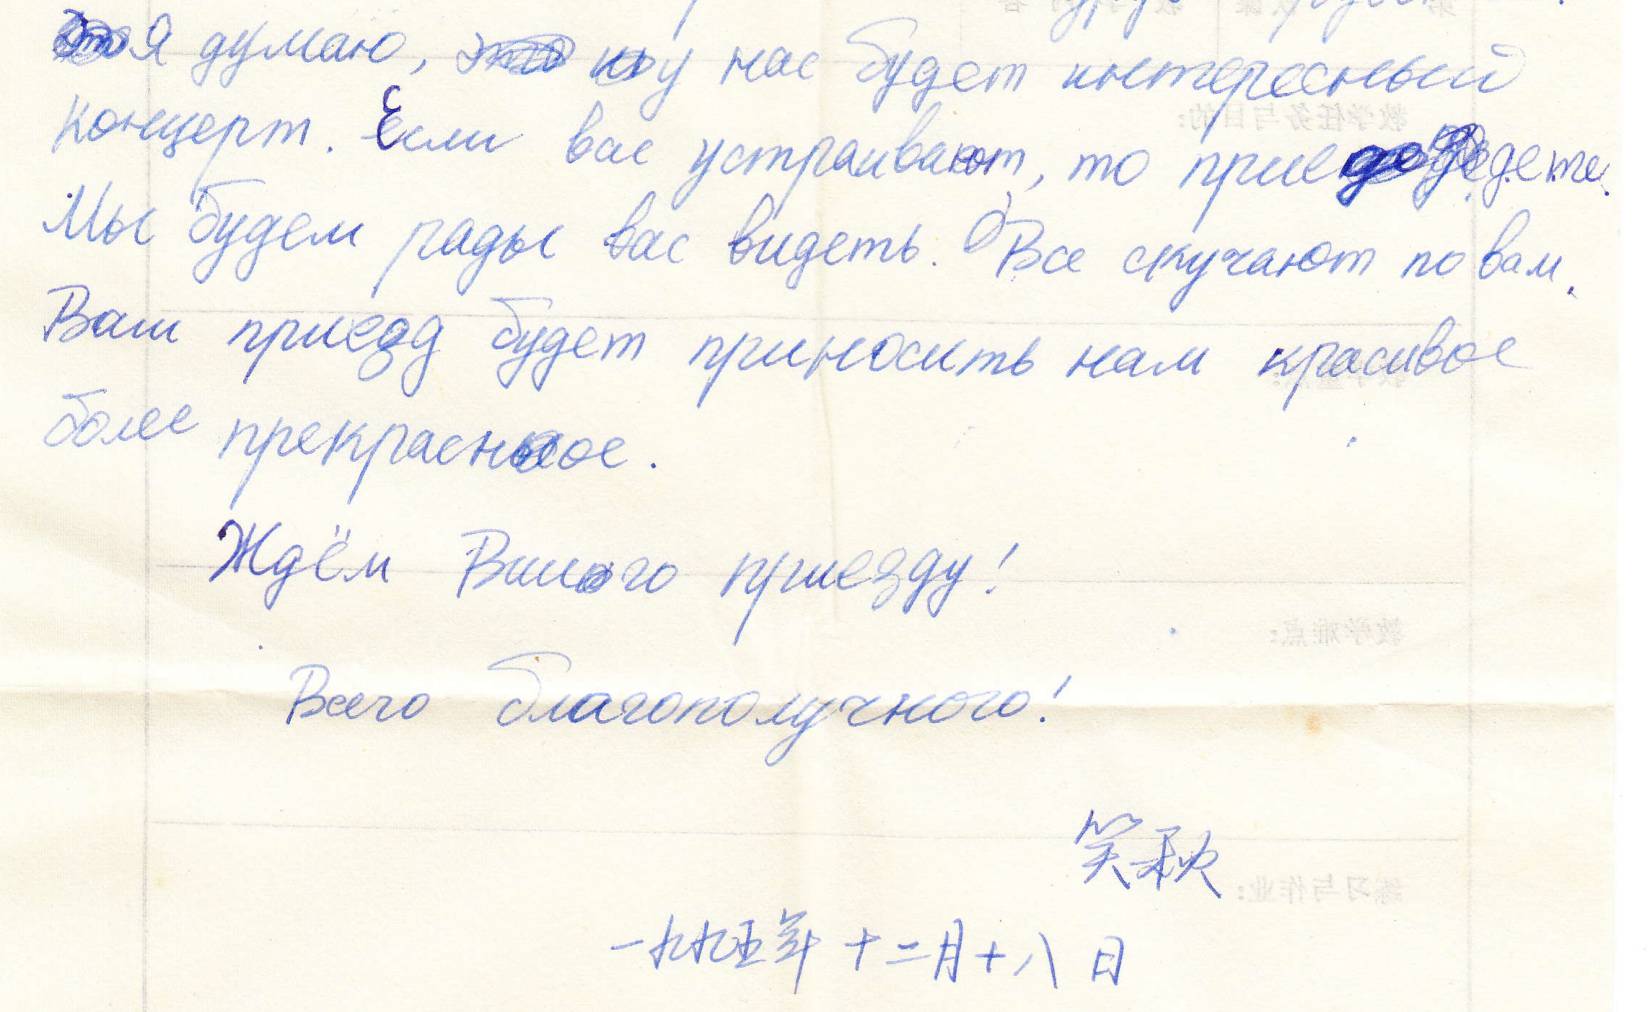 Я думаю, у нас будет интересный
концерт. Если вас устраивают, то приедете.
Мы будем рады вас видеть. Все скучают по вам.
Ваш приезд будет приносить нам красивое
более прекрасное.
Ждём Вашого приезду!
Всего благополучного!
笑秋
一九九五年十二月十八日
教学任务与目的：
教学难点：
练习与作业：